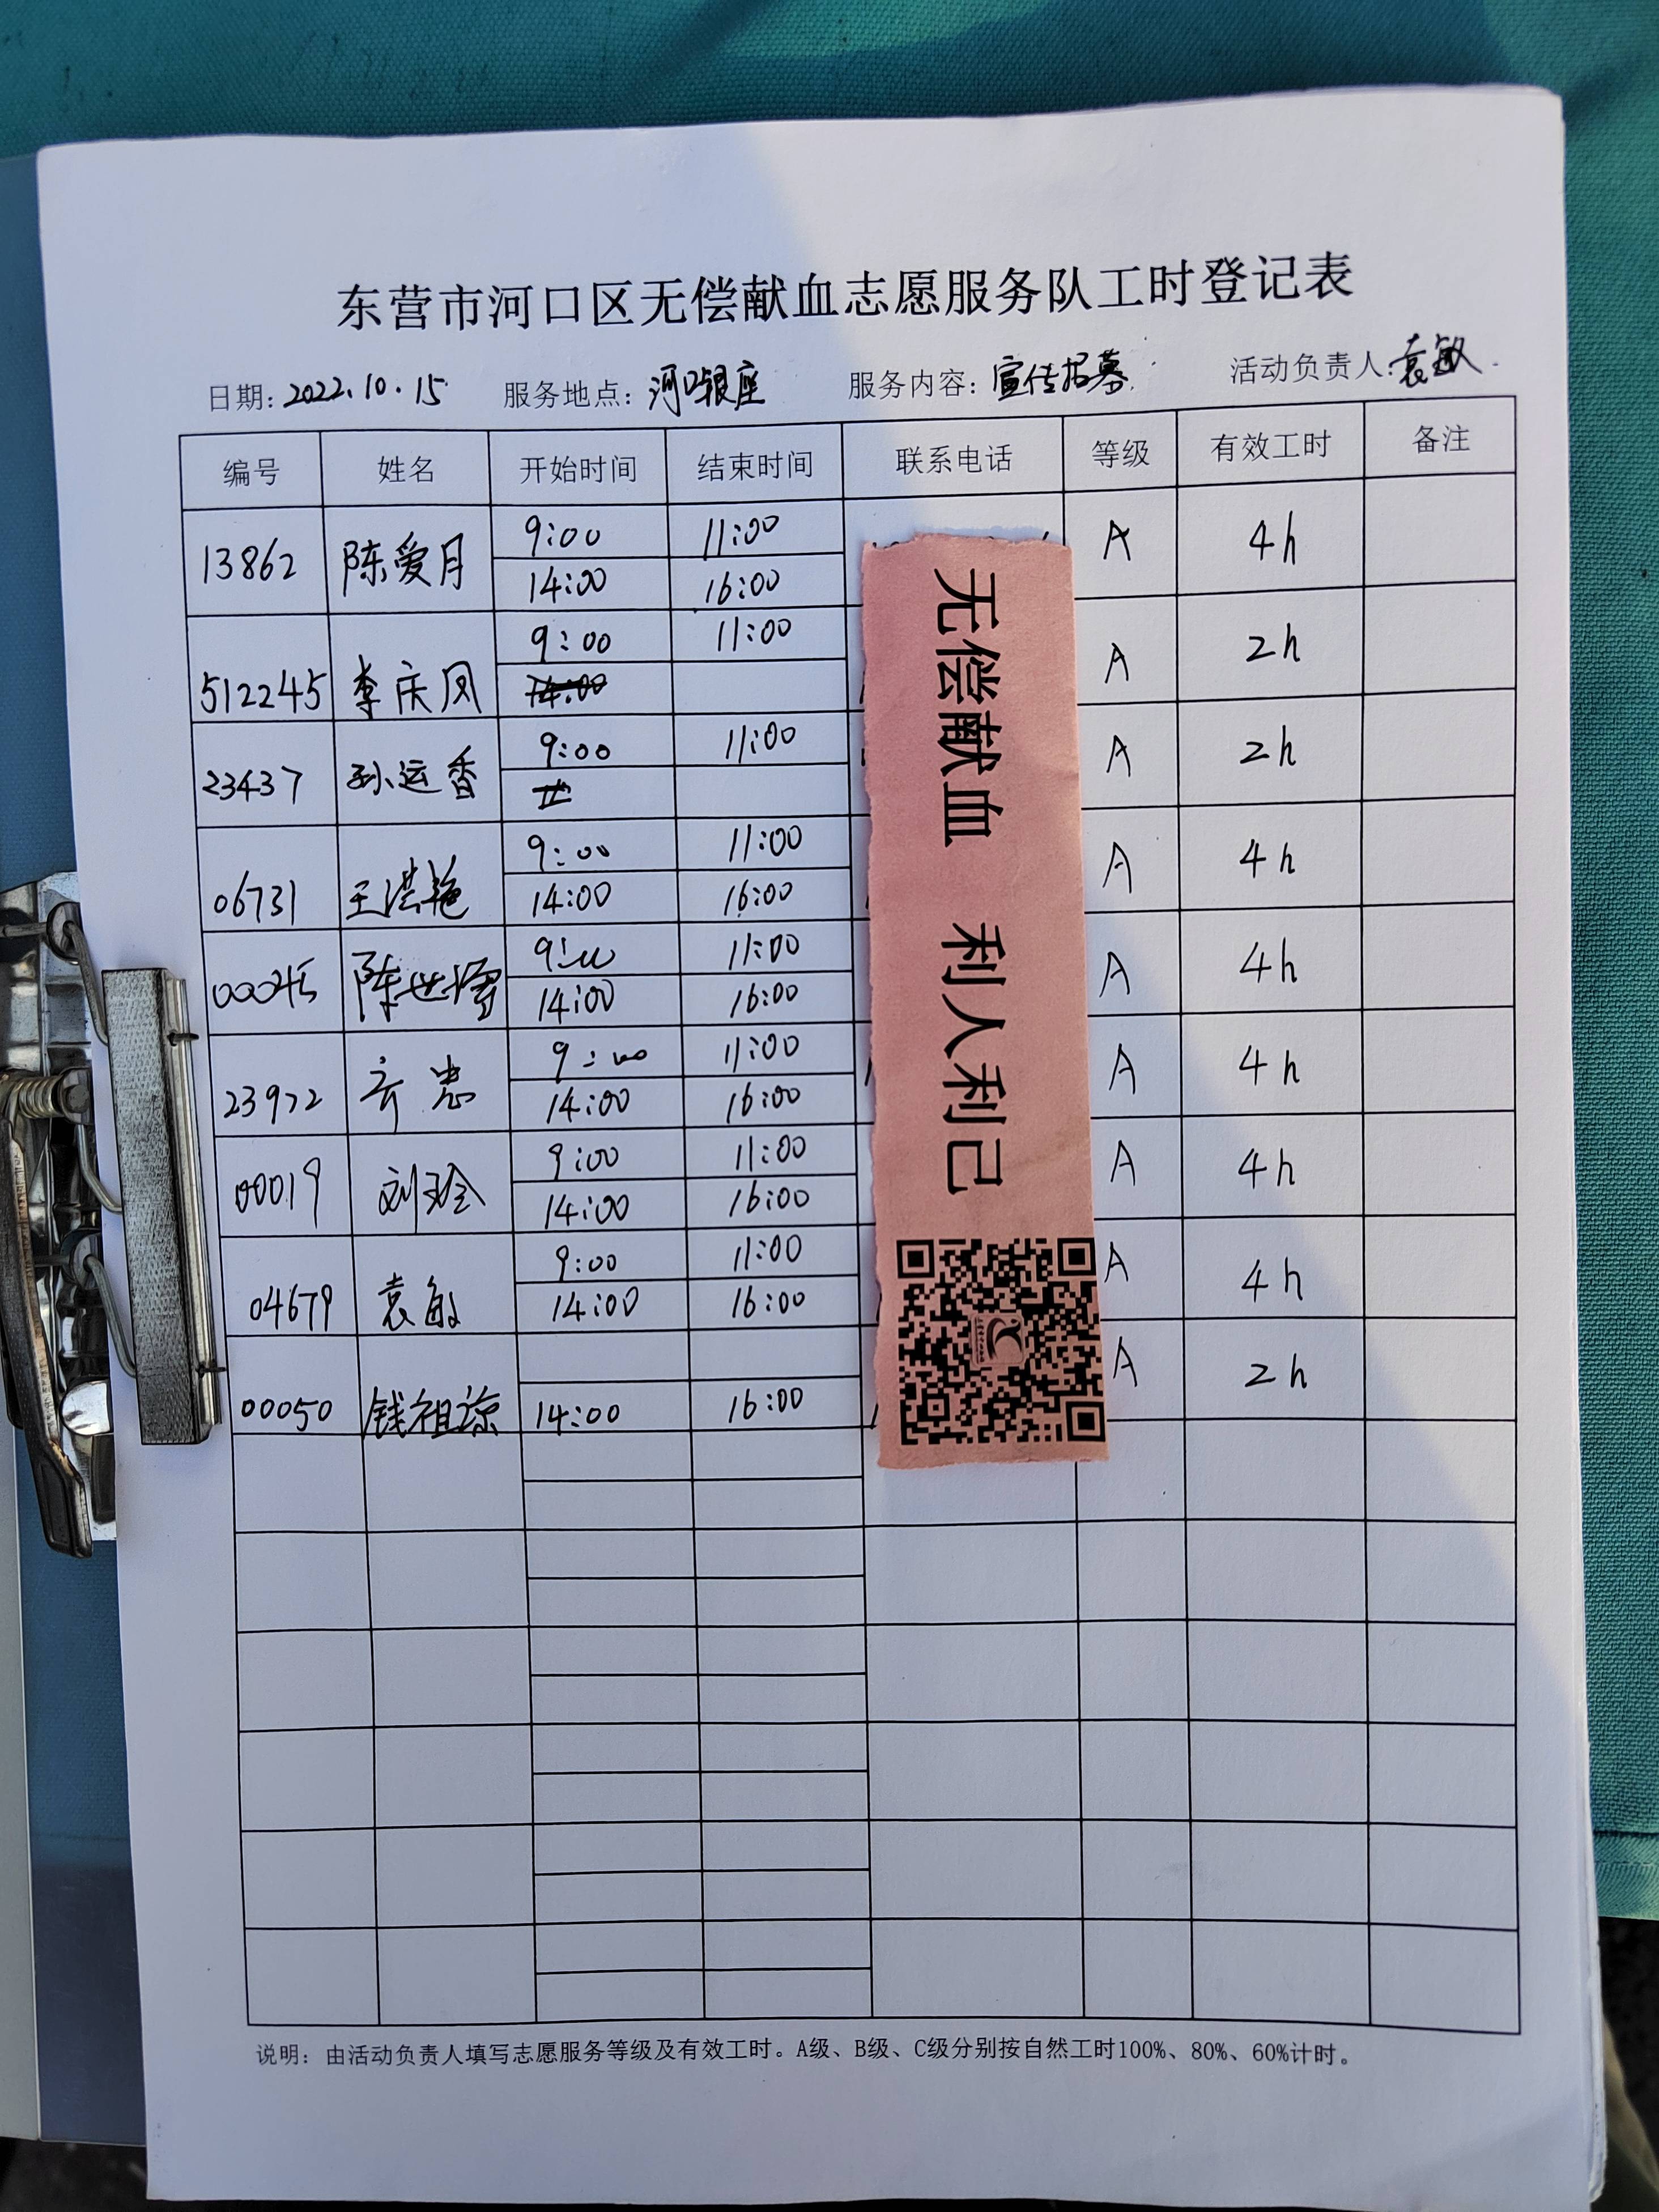 东营市河口区无偿献血志愿服务队工时登记表
日期: 2022.10.15 服务地点: 河口银座 服务内容: 宣传招募 活动负责人: 袁敏
编号 姓名 开始时间 结束时间 联系电话 等级 有效工时 备注
13862 陈爱月 9:00 11:00 A 4h
14:00 16:00
512245 李庆凤 9:00 11:00 A 2h
14:00
23437 孙运香 9:00 11:00 A 2h
06731 王洪艳 9:00 11:00 A 4h
14:00 16:00
陈世 9:00 11:00 A 4h
14:00 16:00
23972 齐忠 9:00 11:00 A 4h
14:00 16:00
00019 刘玲 9:00 11:00 A 4h
14:00 16:00
04679 袁敏 9:00 11:00 A 4h
14:00 16:00
00050 钱祖 14:00 16:00 A 2h
无偿献血 利人利己
说明: 由活动负责人填写志愿服务等级及有效工时。A级、B级、C级分别按自然工时100%、80%、60%计时。